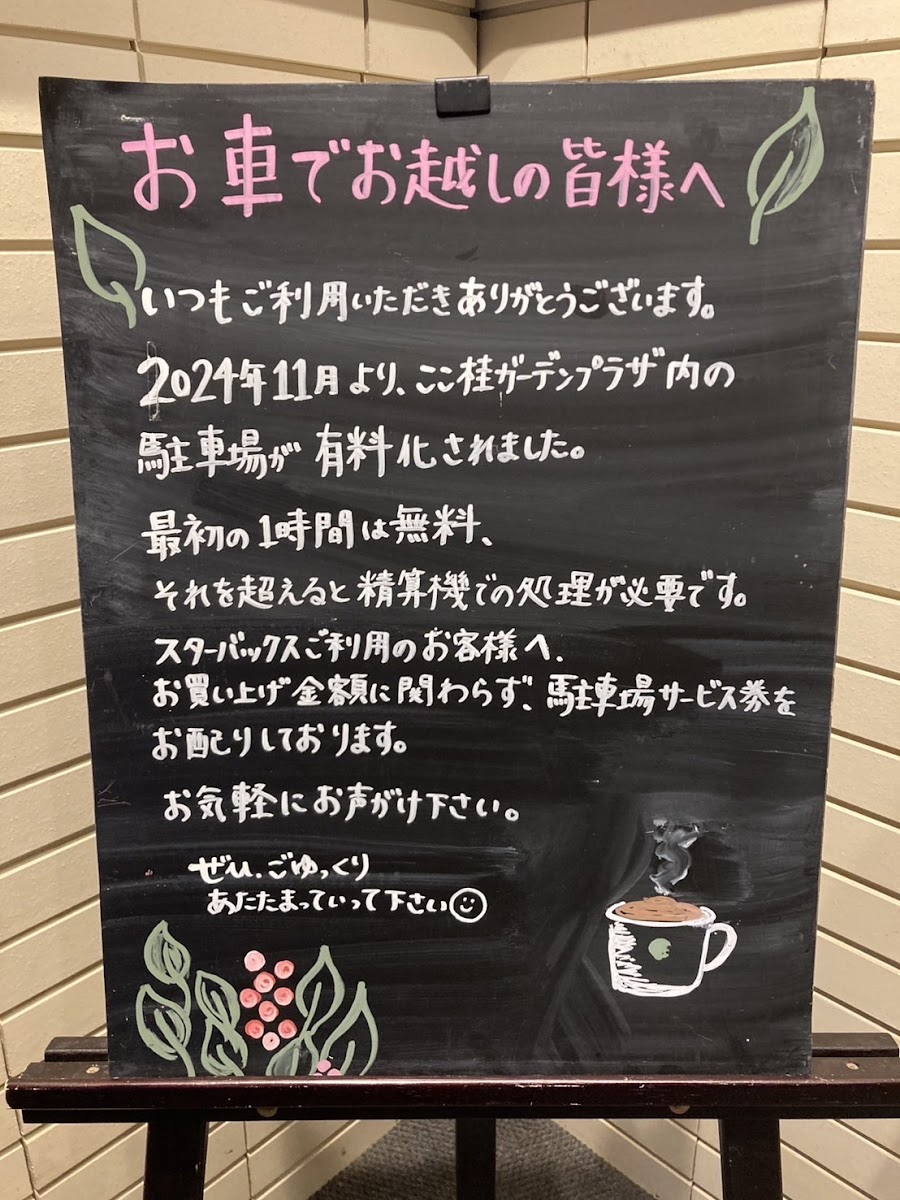 お車でお越しの皆様へ
いつもご利用いただきありがとうございます。
2024年11月より、ここ桂ガーデンプラザ内の
駐車場が有料化されました。
最初の1時間は無料、
それを超えると精算機での処理が必要です。
スターバックスご利用のお客様へ、
お買い上げ金額に関わらず、駐車場サービス券を
お配りしております。
お気軽にお声がけ下さい。
ぜひ、ごゆっくり
あたたまっていって下さい